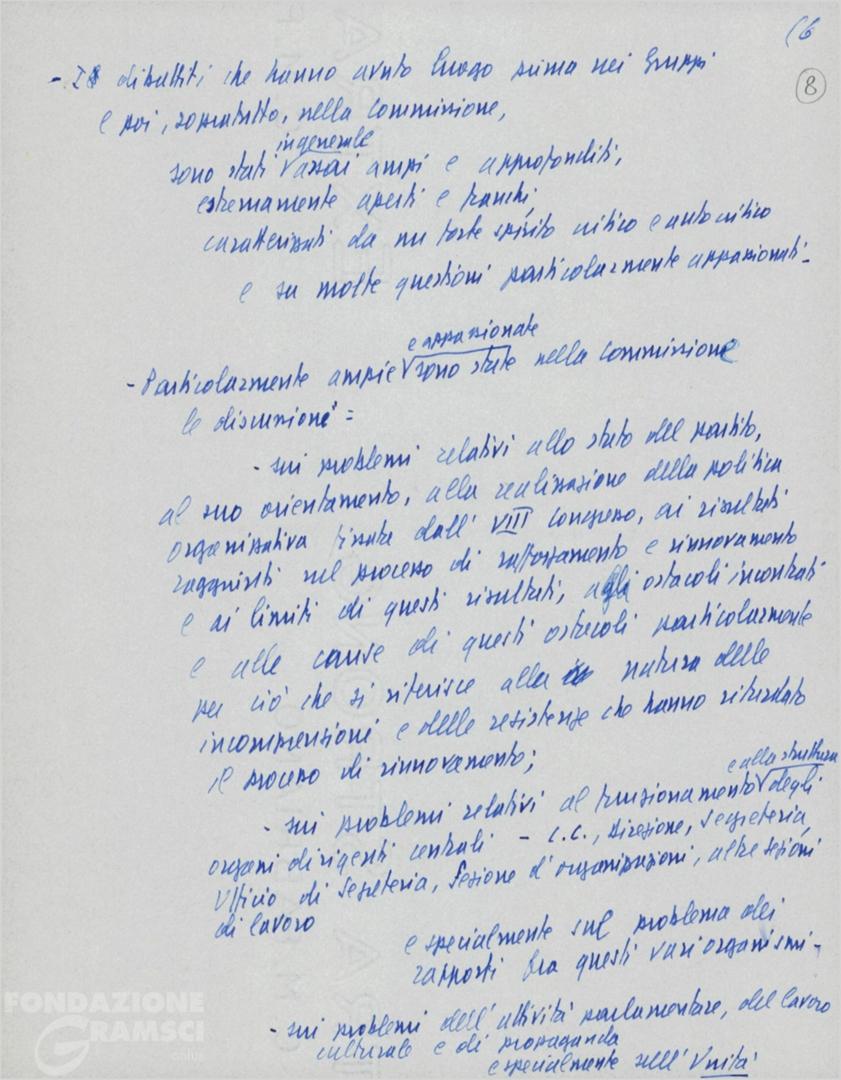 (6
8
- I dibattiti che hanno avuto luogo prima nei Gruppi
e poi, sopratutto, nella Commissione,
in generale
sono stati assai ampi e approfonditi,
estremamente aperti e franchi,
caratterizzati da un forte spirito critico e autocritico
e su molte questioni particolarmente appassionati -
e appassionate
- Particolarmente ampie sono state nella Commissione
le discussioni =
- sui problemi relativi allo stato del partito,
al suo orientamento, alla realizzazione della politica
organizzativa fissata dall' VIII Congresso, ai risultati
raggiunti nel processo di rafforzamento e rinnovamento
e ai limiti di questi risultati, agli ostacoli incontrati
e alle cause di questi ostacoli particolarmente
per ciò che si riferisce alla natura delle
incomprensioni e delle resistenze che hanno ritardato
il processo di rinnovamento;
e alla struttura
- sui problemi relativi al funzionamento degli
organi dirigenti centrali - C.C., Direzione, Segreteria,
Ufficio di Segreteria, Sezione d'organizzazioni, altre sezioni
di lavoro
e specialmente sul problema dei
rapporti tra questi vari organismi -
- sui problemi dell'attività parlamentare, del lavoro
culturale e di propaganda
e specialmente sull'Unità
FONDAZIONE
GRAMSCI